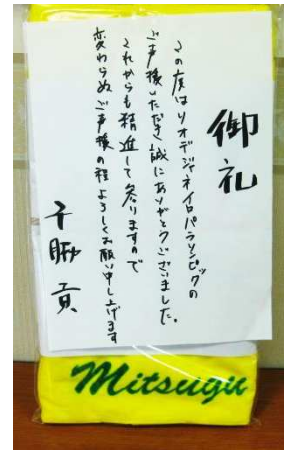 御礼
この度はリオデジャネイロパラリンピックの
ご声援いただき誠にありがとうございました。
これからも精進して参りますので
変わらぬご声援の程よろしくお願い申し上げます
貢
Mitsugu